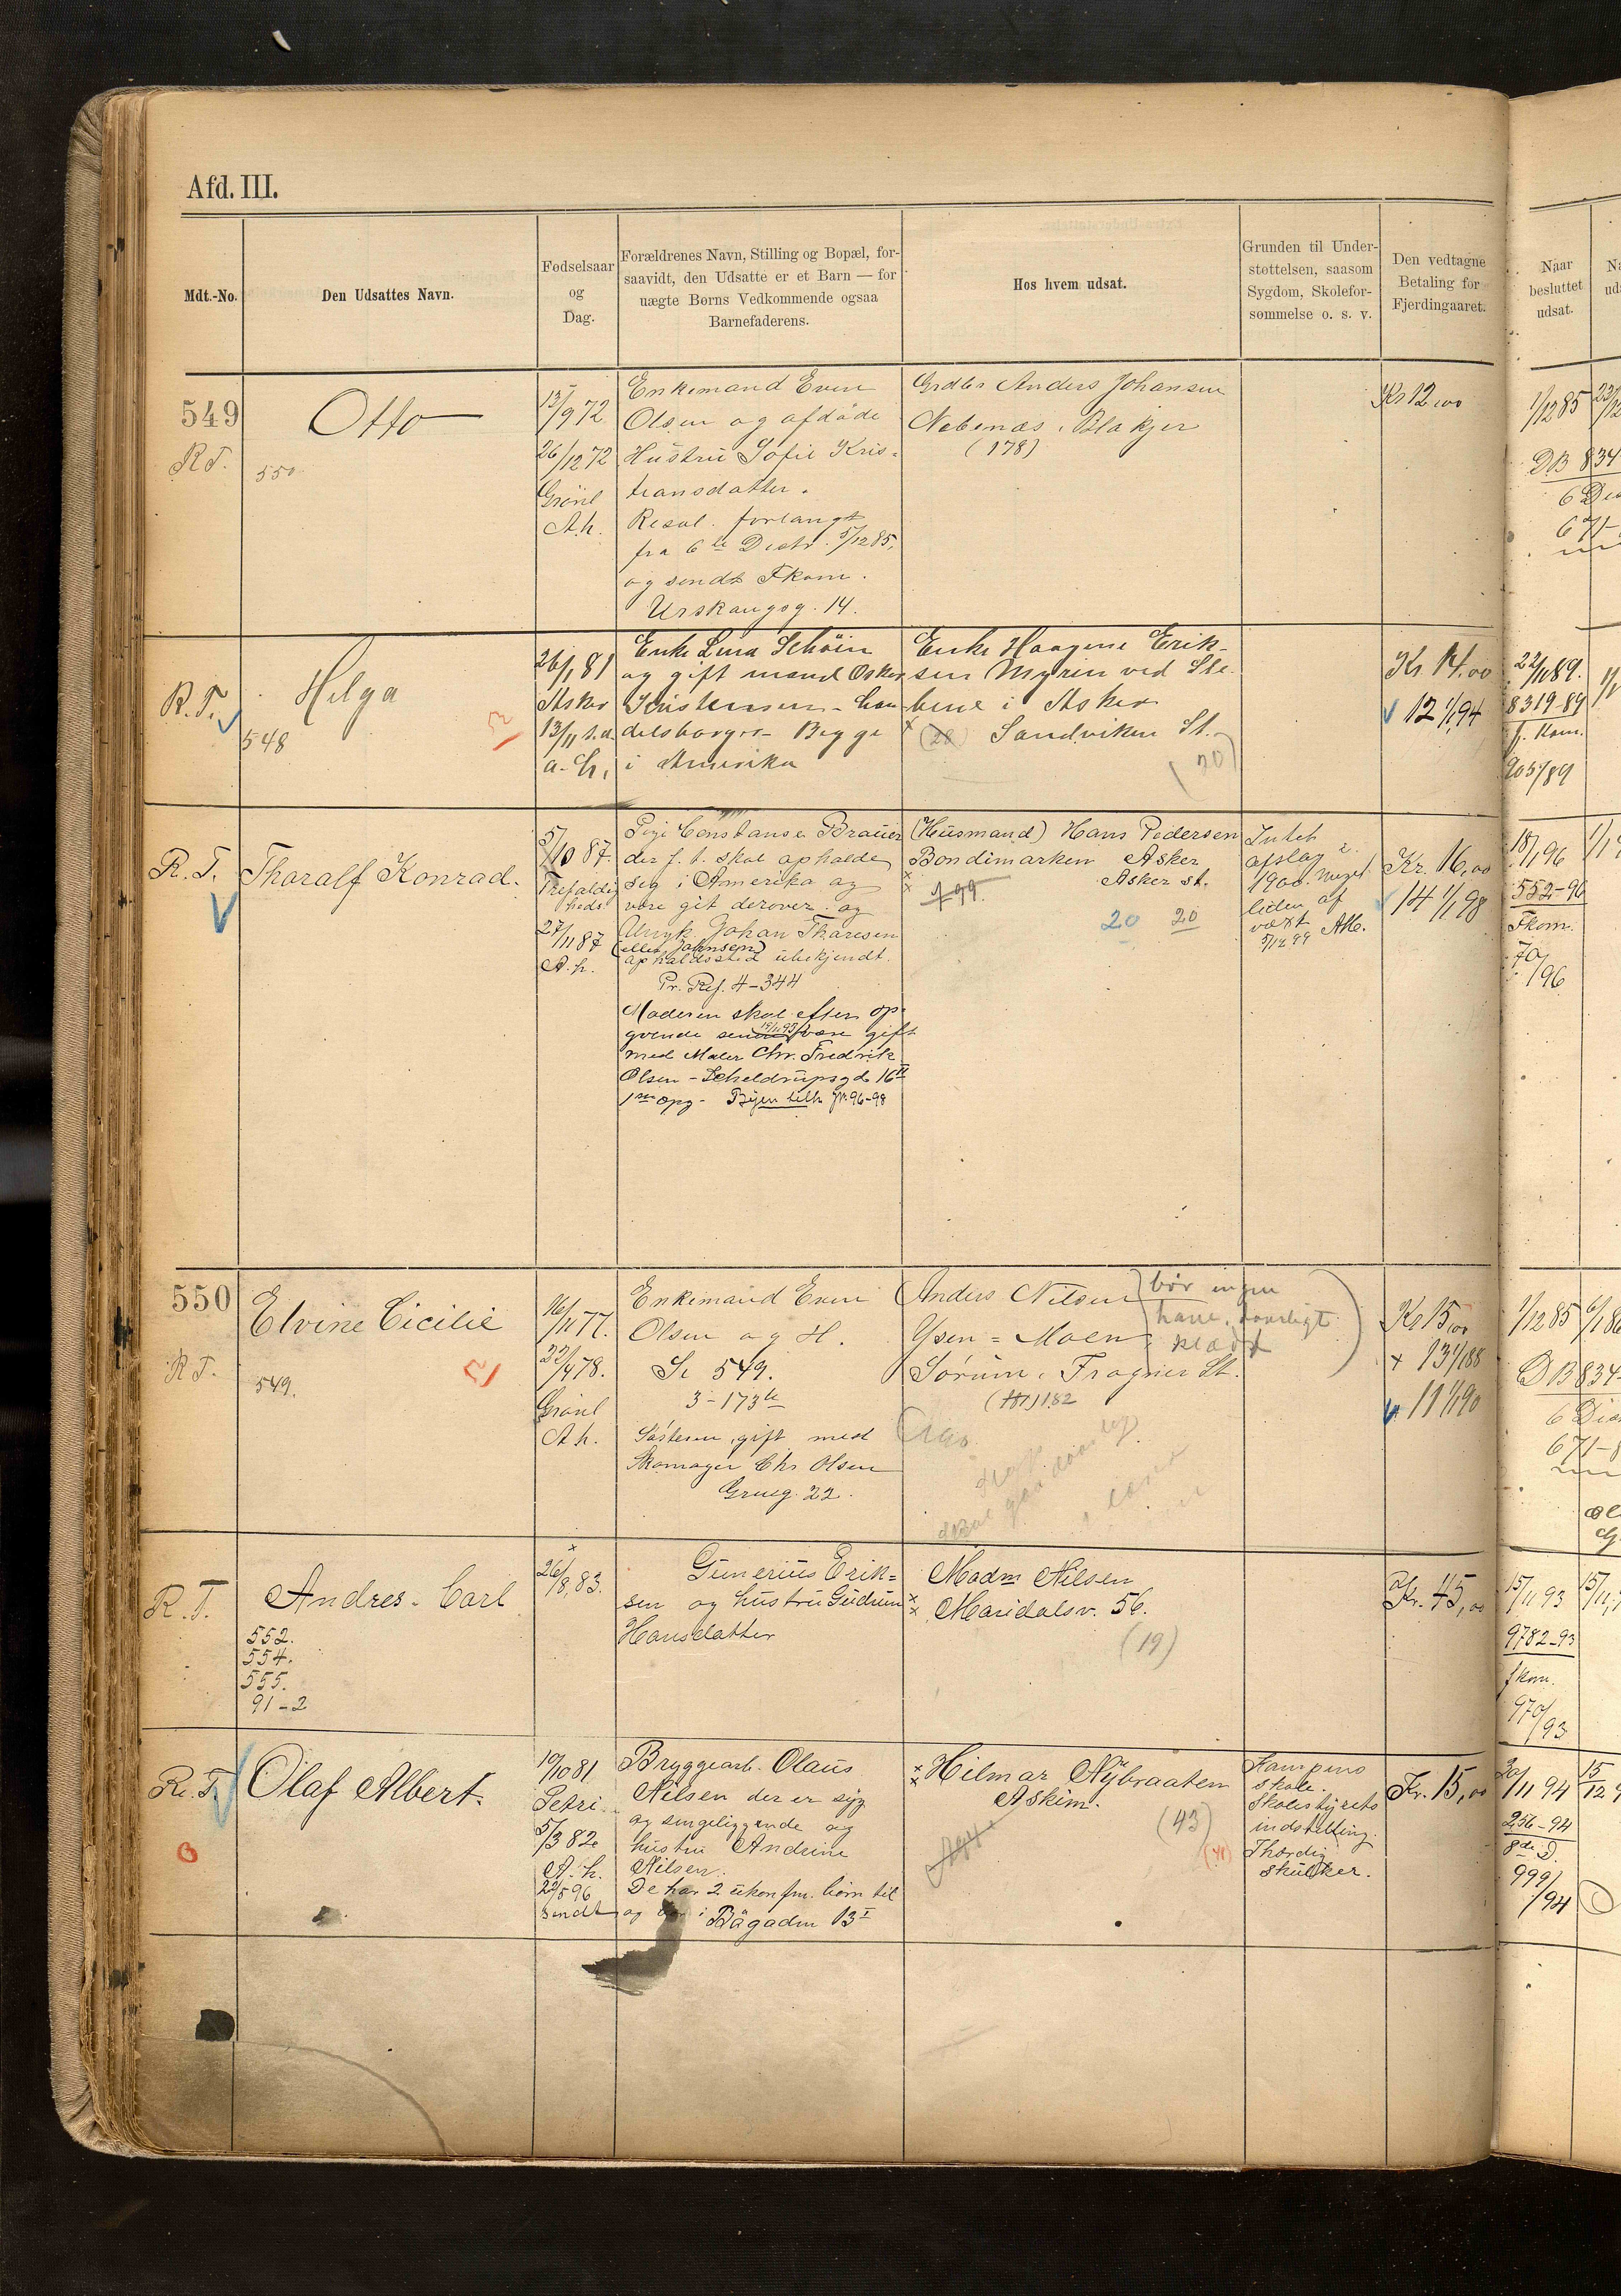 Afd. III.
Mdt.-No.
Den Udsattes Navn.
Fødselsaar
og
Dag.
Forældrenes Navn, Stilling og Bopæl, for-
saavidt, den Udsatte er et Barn — for
uægte Børns Vedkommende ogsaa
Barnefaderens.
Hos hvem udsat.
Grunden til Under-
støttelsen, saasom
Sygdom, Skolefor-
sømmelse o. s. v.
Den vedtagne
Betaling for
Fjerdingaaret.
Naar
besluttet
udsat.
549
R.T.
Otto
550
13/9 72
26/12 72
Grönl
A.h.
Enkemand Even
Olsen og afdöde
Hustru Sofie Kris-
tiansdatter.
Resol. forlangt
fra 6te Distr. 5/12 85,
og sendt Fkom.
Urskougsg. 14.
Grdbr Anders Johansen
Nebenæs, Blakjer
(178)
Kr 12,00
1/12 85
DB 834
R.T.
Helga
548
26/1 81
Asker
13/11 s.a.
a.h.
Enke Lina Schöin
og gift mand Oskar
Kristensen - han
delsborger - Begge
i Amerika
Enke Haagene Erik-
sen Myrin ved Sle-
bene i Asker
(28) Sandviken St.
(20)
Kr. 14,00
12 1/1 94
22/11 89.
8319-89
f. Kom.
903/89
R.T.
Tharalf Konrad.
5/10 87.
Trefoldig
heds
27/11 87
A.h.
Pige Constanse Brauer
der f.t. skal opholde
seg i Amerika og
være git derover og
Urvyk. Johan Tharesen
(eller Johnsen)
opholdssted ubekjendt.
Pr. Ref. 4-344
Moderen skal efter op-
givende senere 19/11 97 være gift
med Maler Chr. Fredrik
Olsen - Scheldrupsgd 16 II
(Husmand) Hans Pedersen
Bondimarken Asker
Asker st.
199.
20 20
Intet
afslag i
1900. meget
liden af
vækst AH.
5/12 99
Kr. 16,00
14 1/1 98
18/1 96
552-96
Fkom.
70/96
550
R.T.
Elvine Cicilie
549.
16/11 77.
22/4 78.
Grönl
A.h.
Enkemand Even
Olsen og H.
Se 549.
3-173 b
Søsteren, gift med
Skomager Chr Olsen
Grueg. 22.
Anders Nilsen
Ysen = Moen
Sørum, Frogner St.
(181) 182
bör ingen
have, daarligt
klædt
Kr 15,00
13 1/1 88
11 1/1 90
1/12 85
DB 834-
R.T.
Andres Carl
552.
554.
555.
91-2
26/8 83.
Gunerius Erik-
sen og hustru Gudrun
Hansdatter
Madm Nilsen
Maridalsv. 56.
(19)
Kr. 45,00
15/11 93
9782-93
fkom.
970/93
R.T.
Olaf Albert.
19/10 81
Petri
5/3 82
A.h.
22/5 96
sendt
Bryggearb. Olaus
Nilsen der er syg
og sengeliggende og
hustru Andrine
Nilsen.
De har 2 ukonfm. börn til
og bor i Bågadm 13 I
Hilmar Nybraaten
Askim.
(43)
(41)
Kampens
skole.
Skolestyrets
indstilling.
Thordig
skulker.
Kr. 15,00
20/11 94
256-94
8de D.
999/94